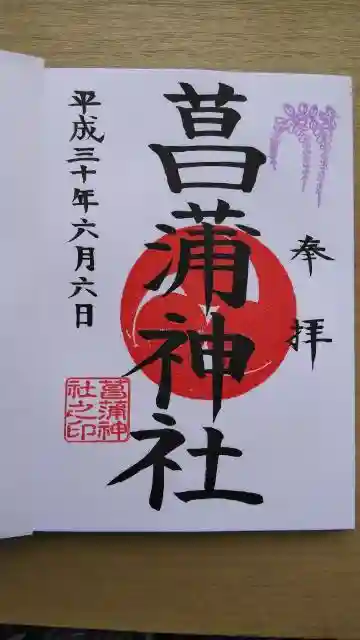 奉拝
菖蒲神社
平成三十年六月六日
菖蒲神
社之印